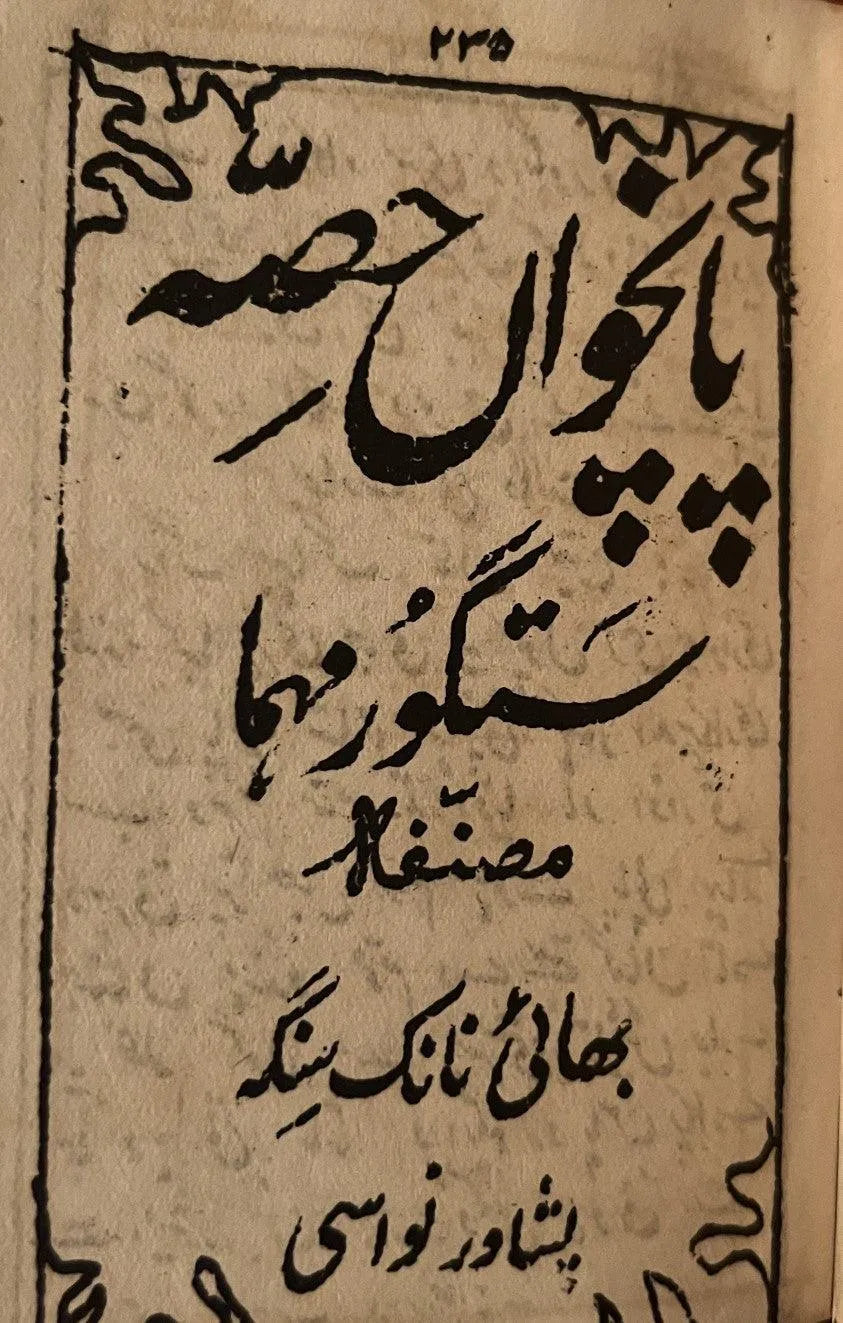 ۲۳۵
پانچواں حصِّہ
سَتگورُ مہما
مصنّفہ
بھائی نانک سِنگہ
پشاور نواسی